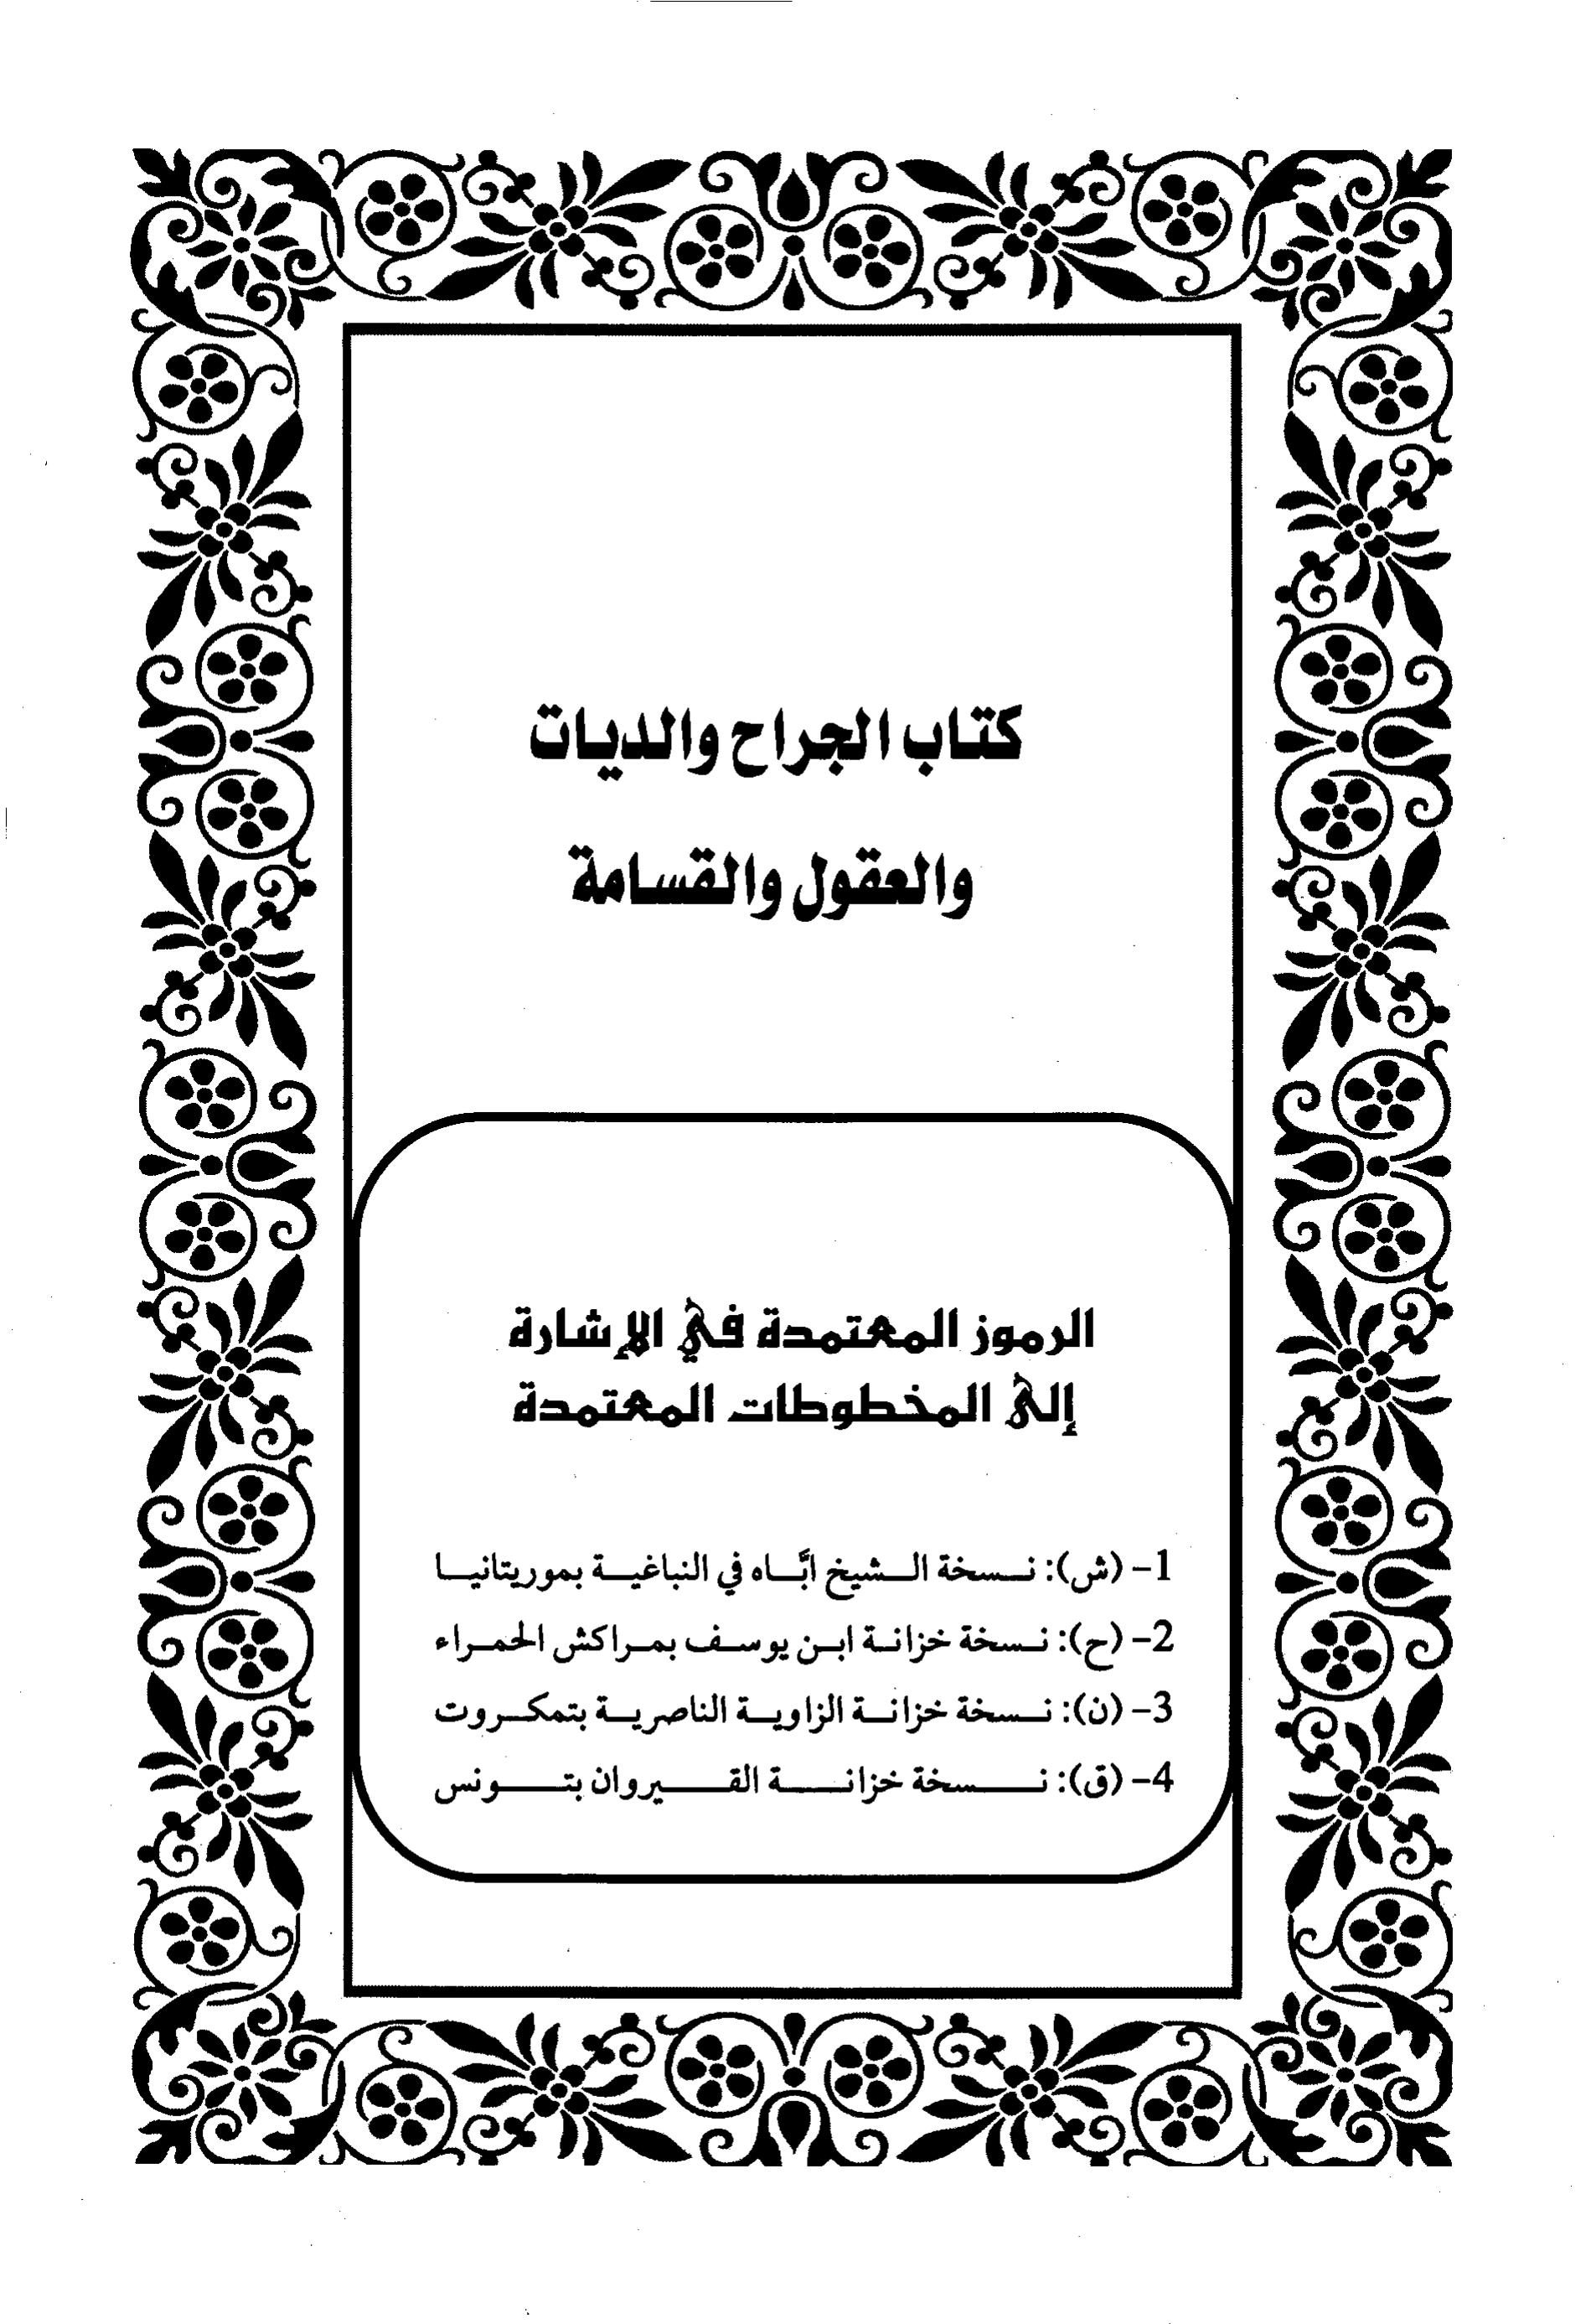 كتاب الجراح والديات
والعقول والقسامة
الرموز المعتمدة في الإشارة
إلى المخطوطات المعتمدة
1- (ش): نسخة الشيخ ابَّاه في النباغية بموريتانيا
2- (ح): نسخة خزانة ابن يوسف بمراكش الحمراء
3- (ن): نسخة خزانة الزاوية الناصرية بتمكروت
4- (ق): نسخة خزانة القيروان بتونس